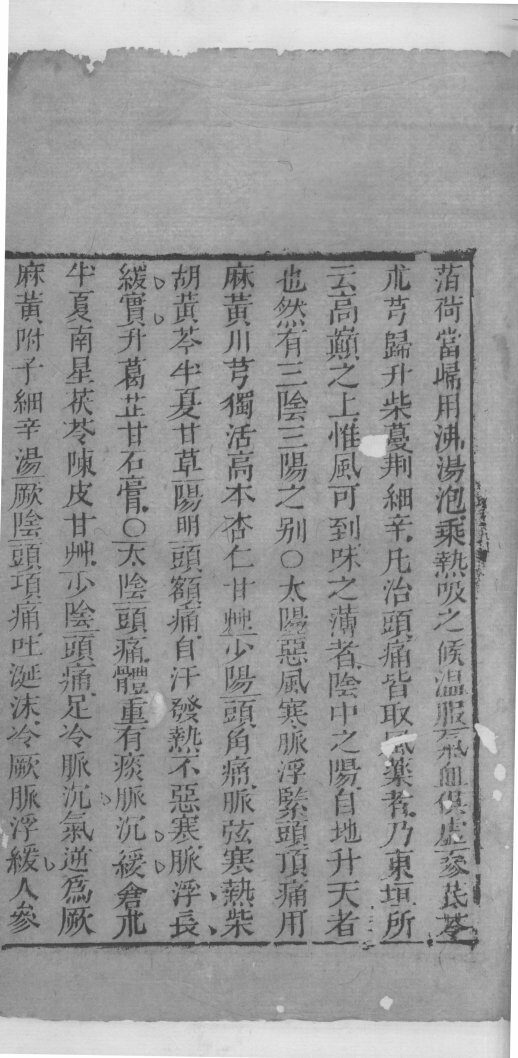 萡荷當歸用沸湯泡乘熱吸之候温服氣血俱虛參芪苓
朮芎歸升柴蔓荆細辛凡治頭痛皆取風藥者乃東垣所
云高巔之上惟風可到味之薄者陰中之陽自地升天者
也然有三陰三陽之别○太陽惡風寒脈浮緊頭頂痛用
麻黃川芎獨活高本杏仁甘艸少陽頭角痛脈弦寒熱柴
胡黃芩半夏甘草陽明頭額痛自汗發熱不惡寒脈浮長
緩實升葛芷甘石膏○太陰頭痛體重有痰脈沉緩倉朮
半夏南星茯苓陳皮甘艸少陰頭痛足冷脈沉氣逆爲厥
麻黃附子細辛湯厥陰頭項痛吐涎沫冷厥脈浮緩人參